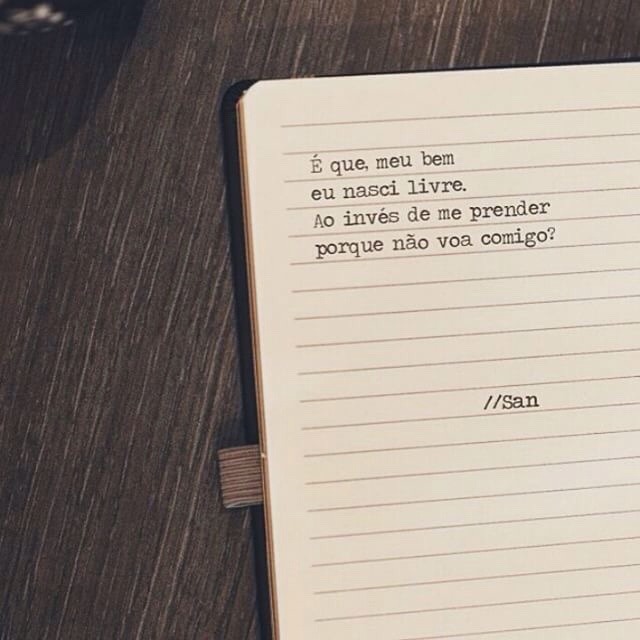 É que, meu bem
eu nasci livre.
Ao invés de me prender
porque não voa comigo?
//San